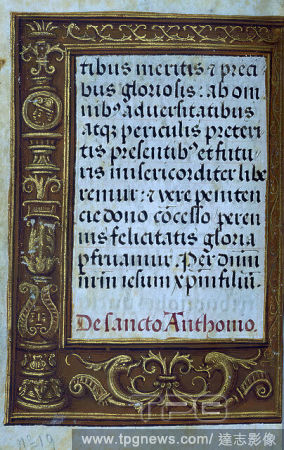 tibus meritis ⁊ preci
bus gloriosis: ab om
nibꝰ aduersitatibus
atqꝫ periculis preteri
tis presentibꝰ et futu
ris misericorditer libe
remur: ⁊ vere peniten
cie dono cōcesso peren
nis felicitatis gloria
pfruamur. Per dnm
nrm iesum xpm filiū.
De sancto Anthonio.
TPG
www.tpgnews.com/達志影像